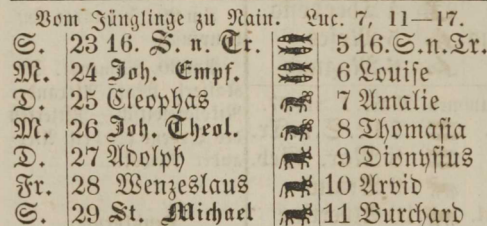 Vom Jünglinge zu Nain. Luc. 7, 11—17.
S. 23 16. S. n. Tr. 5 16. S. n. Tr.
M. 24 Joh. Empf. 6 Louise
D. 25 Cleophas 7 Amalie
M. 26 Joh. Theol. 8 Thomasia
D. 27 Adolph 9 Dionysius
Fr. 28 Wenzeslaus 10 Arvid
S. 29 St. Michael 11 Burchard